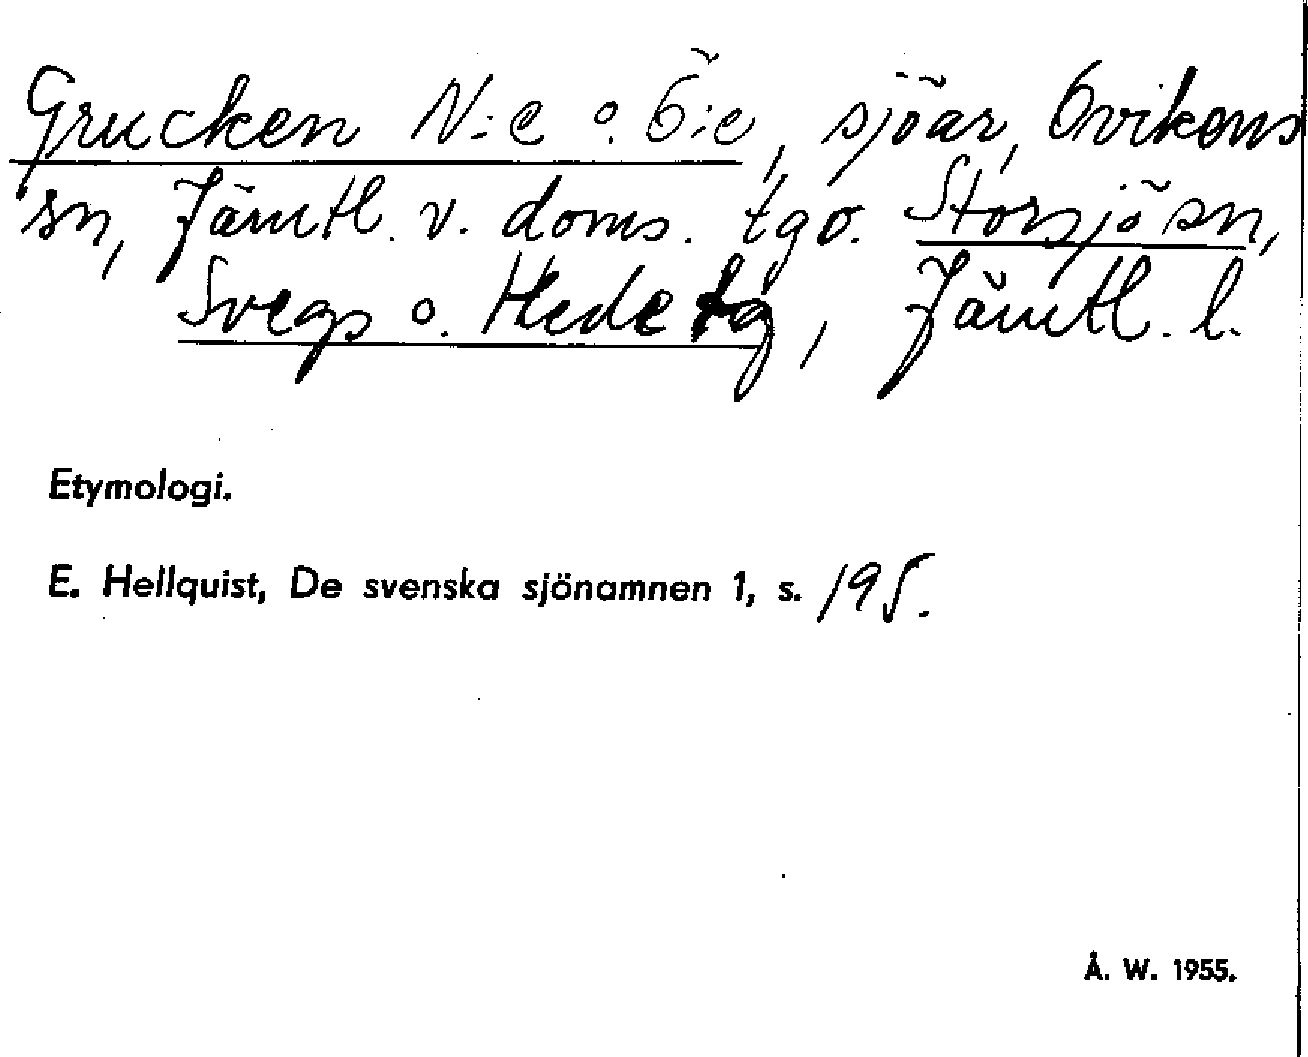 Grucken N:e o. Ö:e, sjöar, Ovikens
sn, Jämtl. v. doms. tg o. Storsjö sn,
Svegs o. Hede tg, Jämtl. l.
Etymologi.
E. Hellquist, De svenska sjönamnen 1, s. 195.
Å. W. 1955.